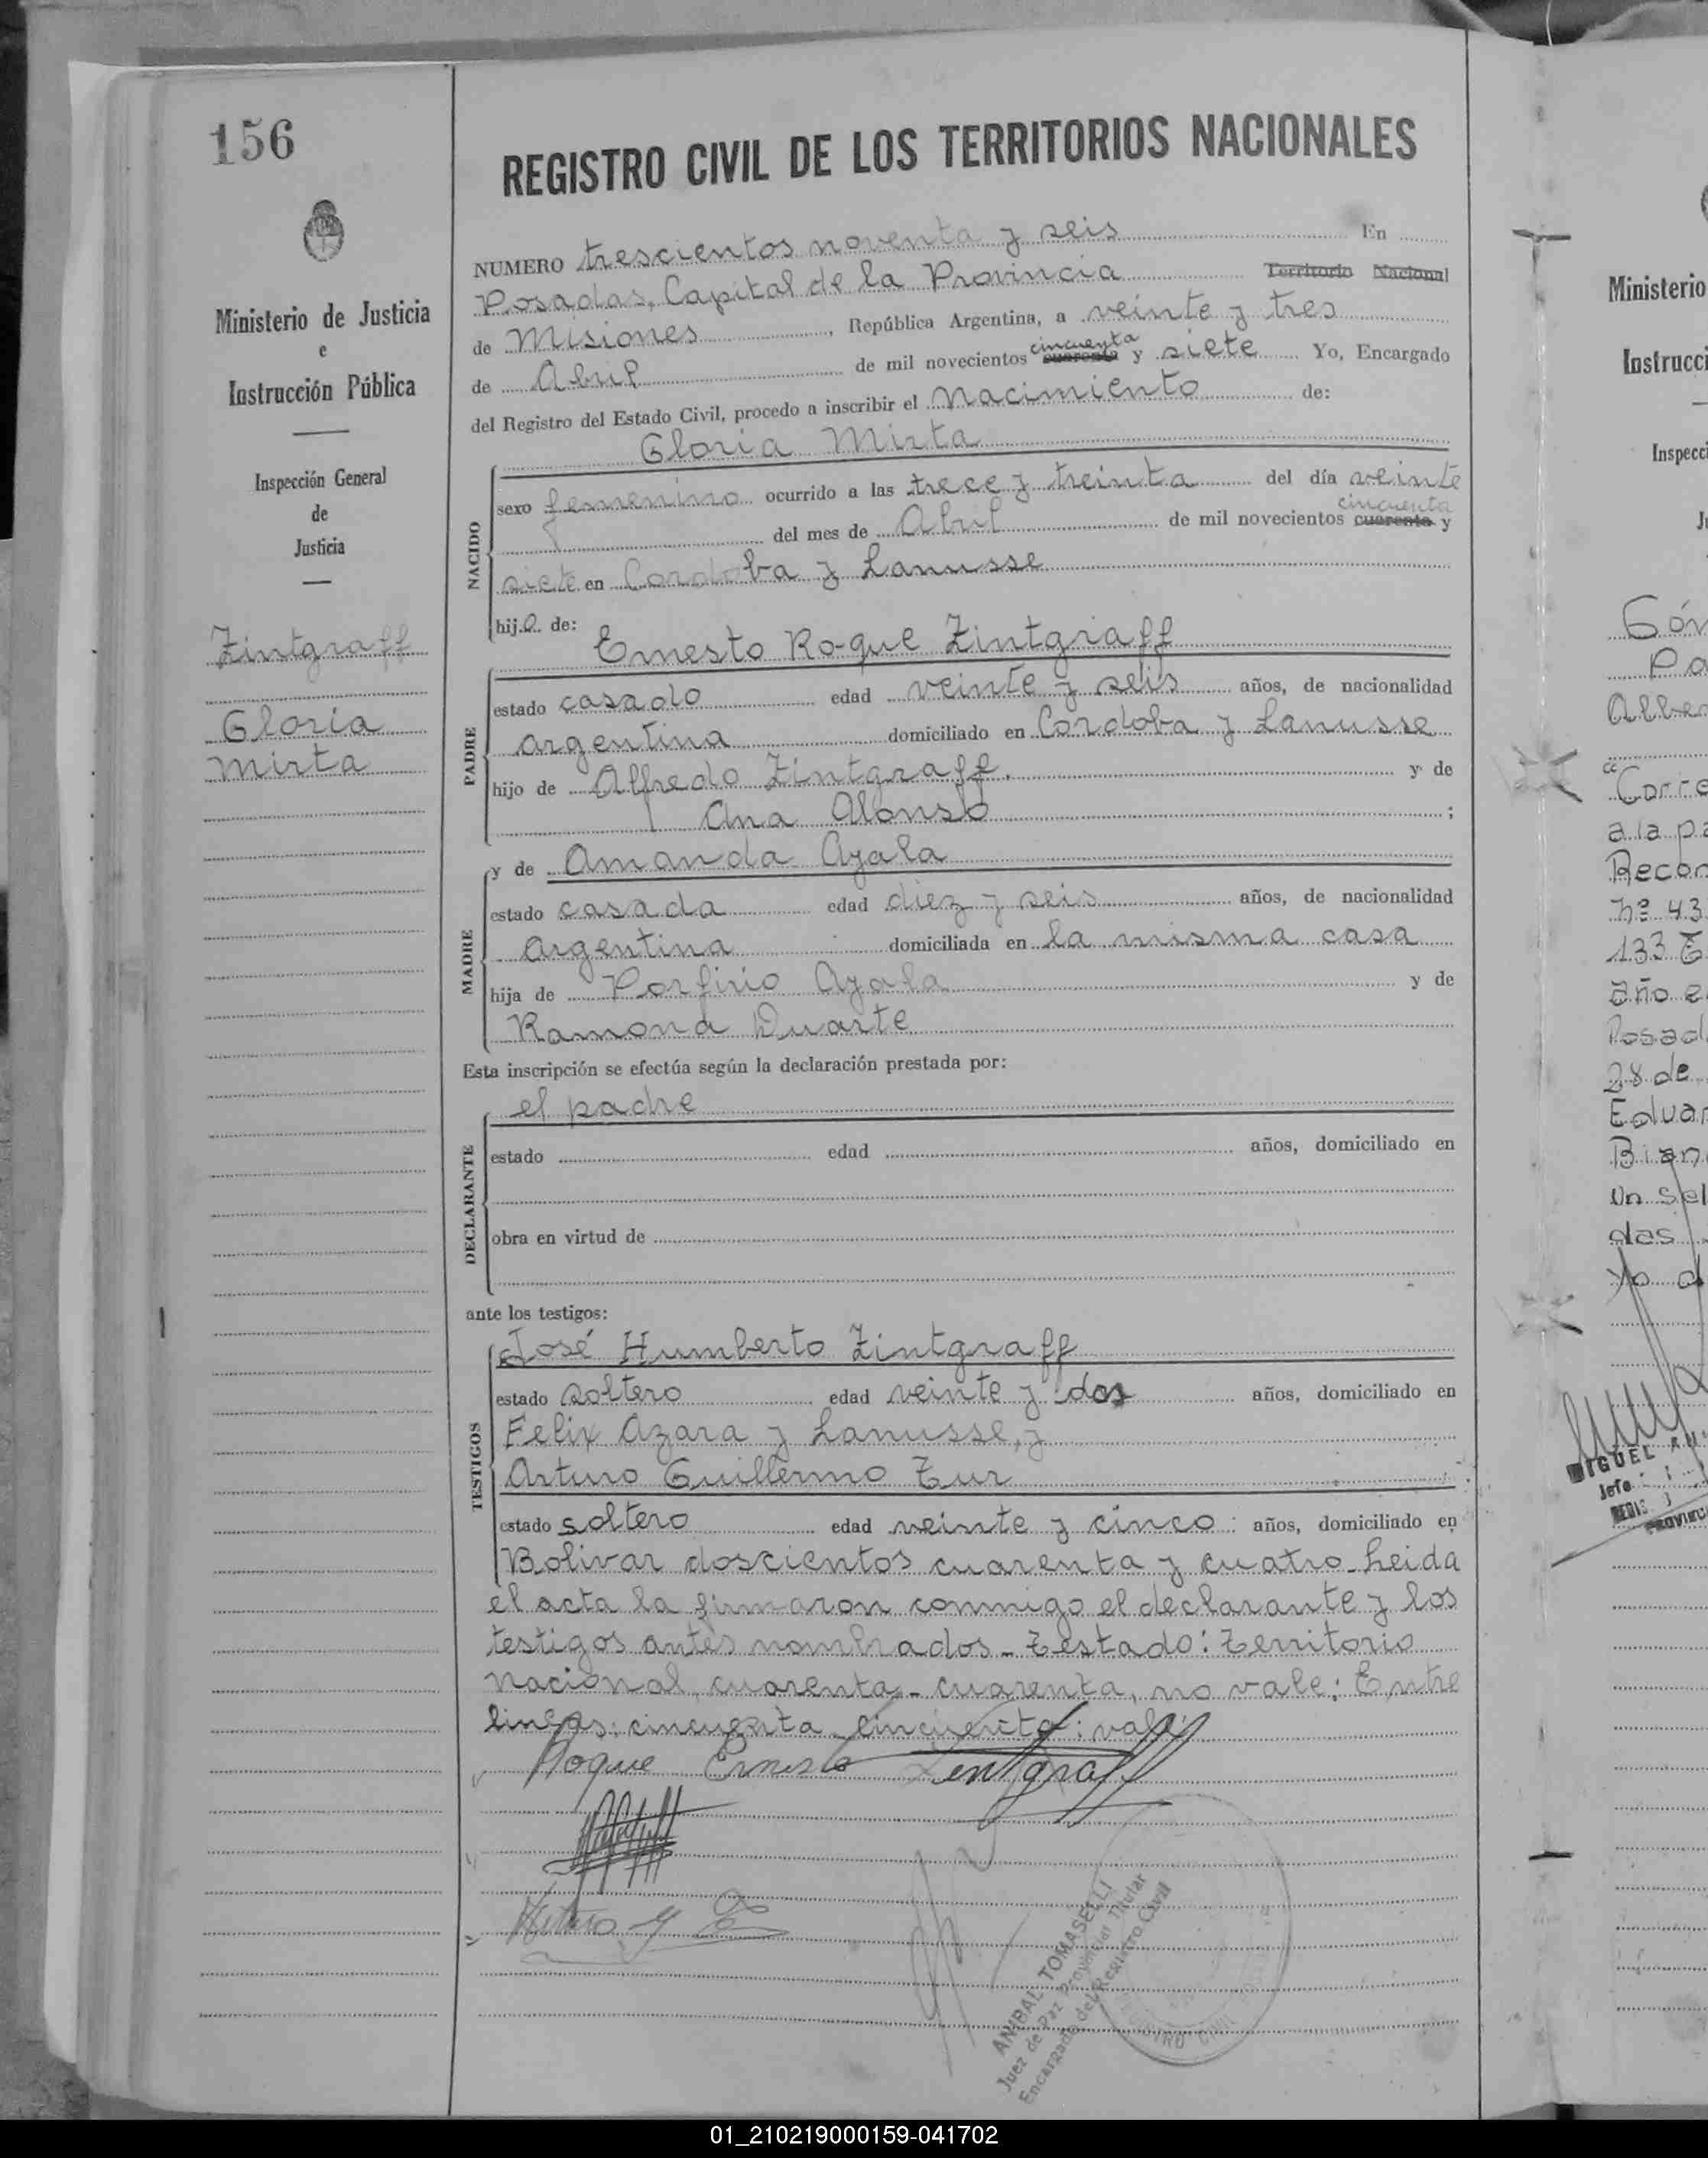 156
Ministerio de Justicia
e
Instrucción Pública
Inspección General
de
Justicia
Zintgraff
Gloria
Mirta
REGISTRO CIVIL DE LOS TERRITORIOS NACIONALES
NUMERO trescientos noventa y seis En
Posadas, Capital de la Provincia Territorio Nacional
de Misiones, República Argentina, a veinte y tres
de Abril de mil novecientos cuarenta cincuenta y siete Yo, Encargado
del Registro del Estado Civil, procedo a inscribir el Nacimiento de:
Gloria Mirta
NACIDO
sexo femenino ocurrido a las trece y treinta del día veinte
del mes de Abril de mil novecientos cuarenta cincuenta y
siete en Cordoba y Lanusse
hija de:
Ernesto Roque Zintgraff
PADRE
estado casado edad veinte y seis años, de nacionalidad
argentina domiciliado en Cordoba y Lanusse
hijo de Alfredo Zintgraff, y de
Ana Alonso ;
y de Amanda Ayala
MADRE
estado casada edad diez y seis años, de nacionalidad
argentina domiciliada en la misma casa
hija de Porfirio Ayala y de
Ramona Duarte
Esta inscripción se efectúa según la declaración prestada por:
el padre
DECLARANTE
estado edad años, domiciliado en
obra en virtud de
ante los testigos:
José Humberto Zintgraff
TESTIGOS
estado soltero edad veinte y dos años, domiciliado en
Felix Azara y Lanusse, y
Arturo Guillermo Zur
estado soltero edad veinte y cinco años, domiciliado en
Bolivar doscientos cuarenta y cuatro - Leida
el acta la firmaron conmigo el declarante y los
testigos antes nombrados - Testado: Territorio
Nacional, cuarenta - cuarenta, no vale: Entre
lineas: cincuenta - cincuenta: vale.
Roque Ernesto Zintgraff
ANIBAL TOMASELLI
Juez de Paz Provincial Titular
Encargado del Registro Civil
Ministerio
Instrucci
Inspecci
J
Góm
Pa
Alber
"Corre
a la pa
Recon
Nº 43
133 T
año e
Posad
28 de
Eduar
Bian
Un sel
das
Yo d
MIGUEL
Jefe
PROVINC
01_210219000159-041702